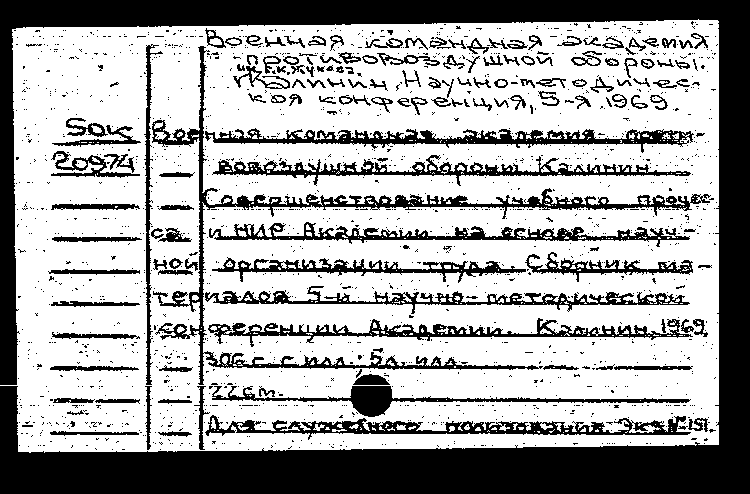 Военная командная академия
противовоздушной обороны.
им. Г.К. Жукова.
Калинин, Научно-методичес-
кая конференция, 5-я 1969.
SOK Военная командная академия проти-
20974 вовоздушной обороны Калинин.
Совершенствование учебного процес
са и НИР Академии на основе науч-
ной организации труда. Сборник ма-
териалов 5-й научно-методической
конференции Академии. Калинин, 1969
306 с. с илл.; 5 л. илл.
22 см.
Для служебного пользования. Экз № 151.